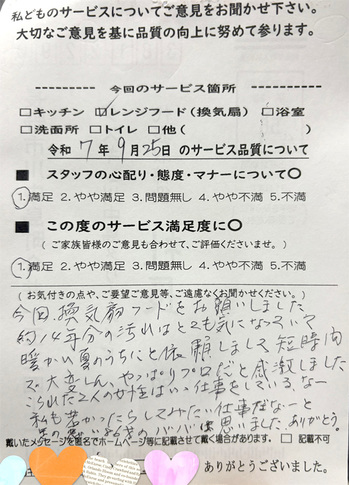 私どものサービスについてご意見をお聞かせ下さい。
大切なご意見を基に品質の向上に努めて参ります。
今回のサービス箇所
□キッチン ☑レンジフード(換気扇) □浴室
□洗面所 □トイレ □他( )
令和 7年 9月 25日 のサービス品質について
■ スタッフの心配り・態度・マナーについて○
1.満足 2.やや満足 3.問題無し 4.やや不満 5.不満
■ この度のサービス満足度に○
(ご家族皆様のご意見も合わせて、ご評価くださいませ。)
1.満足 2.やや満足 3.問題無し 4.やや不満 5.不満
(お気付きの点や、ご要望ご意見等、ご遠慮なくお聞かせください。)
今回、換気扇フードをお願いしました
約14年分の汚れはとても気になっていて
暖かい夏のうちにと依頼しまして短時間
で大変しん、やっぱりプロだと感激しました
こられた2人の女性はいい仕事をしているなー
私も若かったらしてみたい仕事だなーと
のババは思いました ありがとう。
戴いたメッセージを匿名でホームページ等に記載させて戴く場合があります。 □記載不可
ありがとうございました。